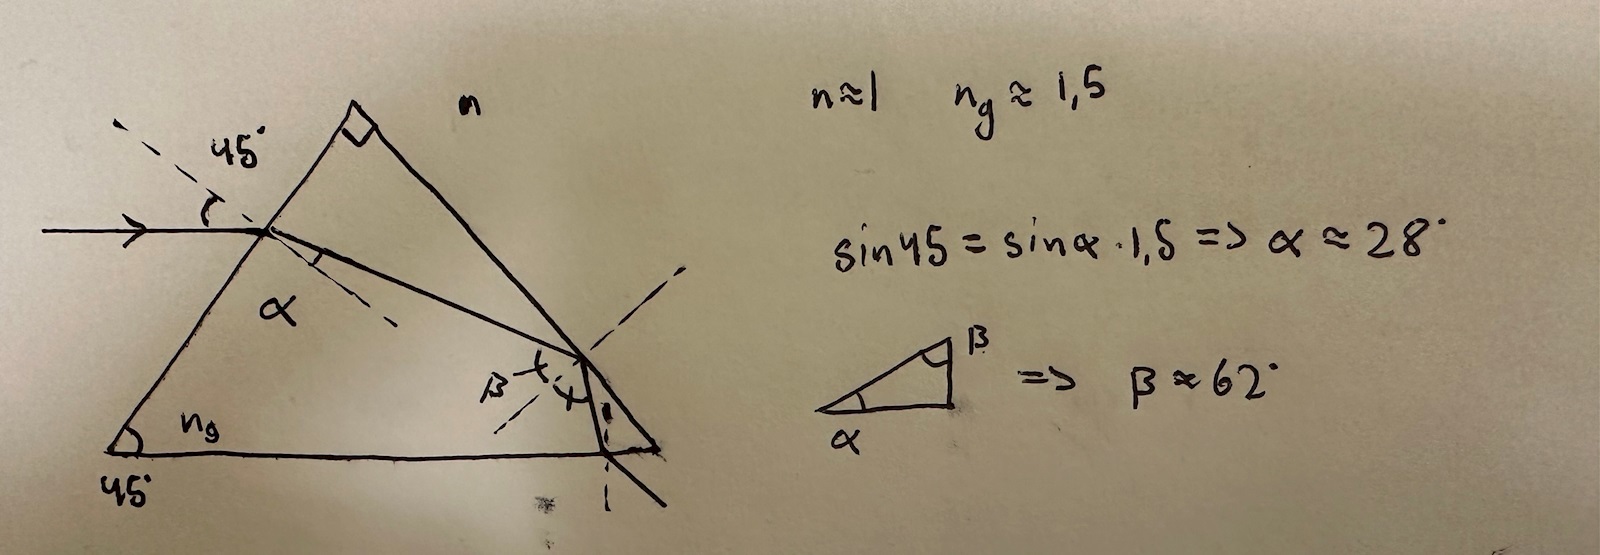 n
45°
α
β
n_g
45°
n≈1 n_g ≈ 1,5
sin45 = sinα · 1,5 => α ≈ 28°
β
α
=> β ≈ 62°